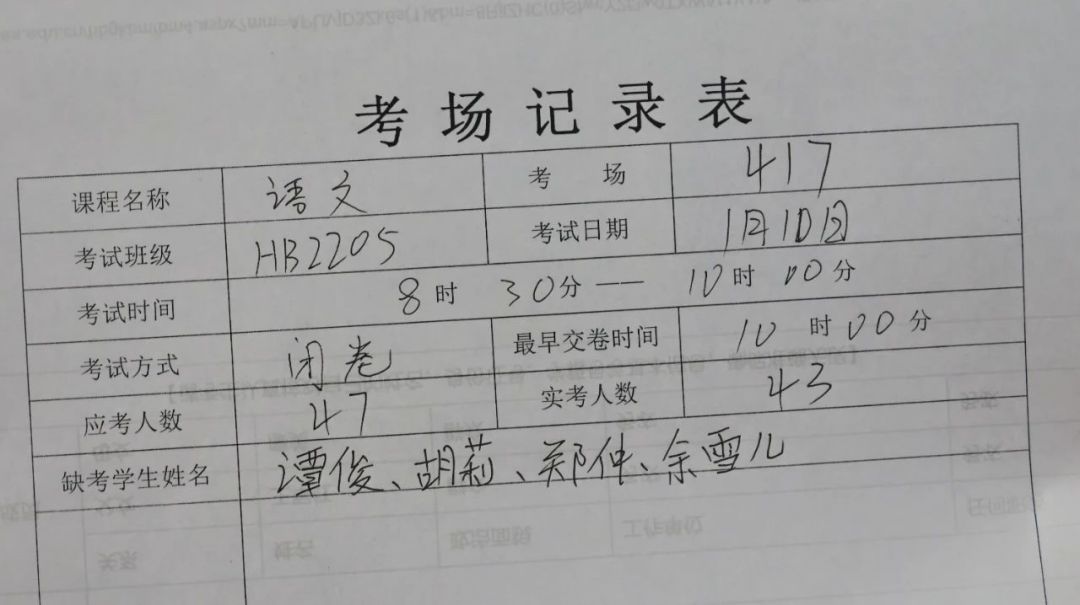 考场记录表
课程名称 语文 考 场 417
考试班级 HB2205 考试日期 1月10日
考试时间 8时 30分 —— 10时 00分
考试方式 闭卷 最早交卷时间 10 时 00 分
应考人数 47 实考人数 43
缺考学生姓名 谭俊、胡莉、郑仲、余雪儿